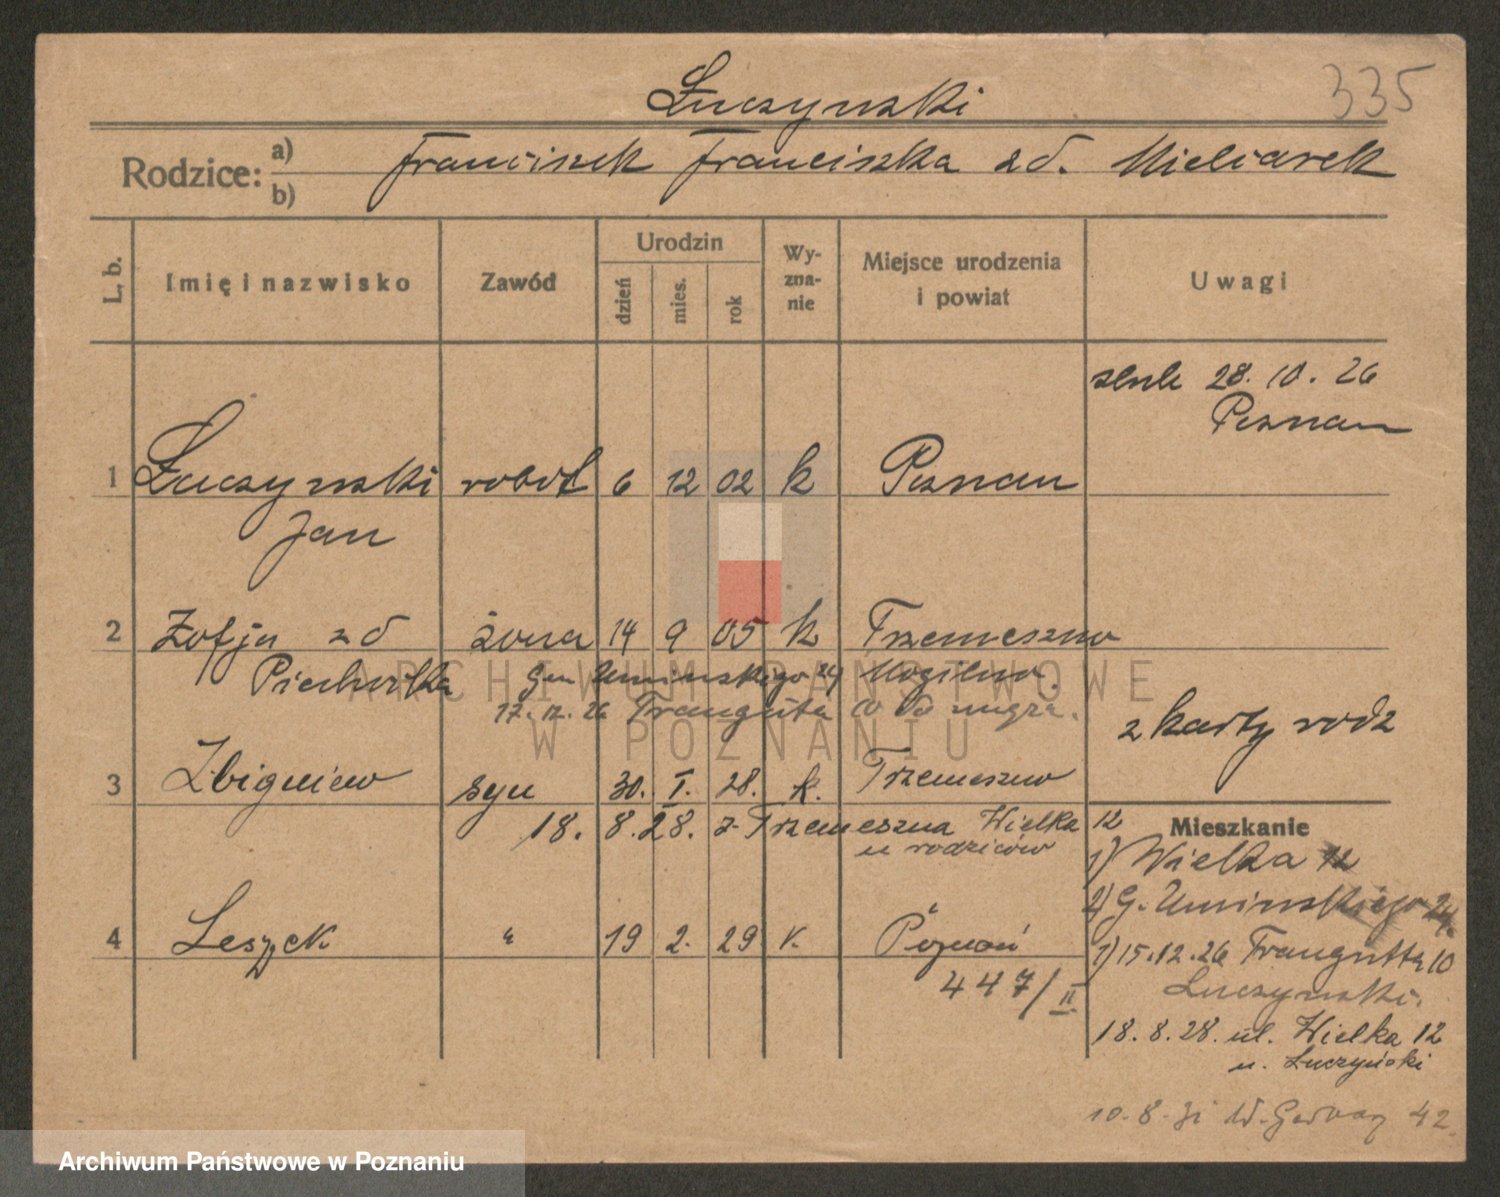 Łuczynski
335
Rodzice: a) b) Franciszek Franciszka zd. Mielcarek
L. b.
Imię i nazwisko
Zawód
Urodzin
dzień
mies.
rok
Wy-
zna-
nie
Miejsce urodzenia
i powiat
Uwagi
28. 10. 26
Poznan
1 Łuczynski robot 6 12 02 k Poznan
Jan
2 Zofja zd żona 14 9 05 k Trzemeszno
Gen Uminskiego 24 Mogilno.
17. 12. 26 Traugutta 10
z karty rodz
3 Zbigniew syn 30. I. 28. k. Trzemeszno
18. 8. 28. z Trzemeszna Wielka 12
u rodziców
Mieszkanie
1) Wielka 12
2) G. Uminskiego 24.
4 Leszek " 19 2. 29 k. Poznań
1) 15.12.26 Traugutta 10
447/II
Łuczynski.
18. 8. 28. ul. Wielka 12
u. Łuczyński
10. 8. 31 42
ARCHIWUM PAŃSTWOWE
W POZNANIU
Archiwum Państwowe w Poznaniu